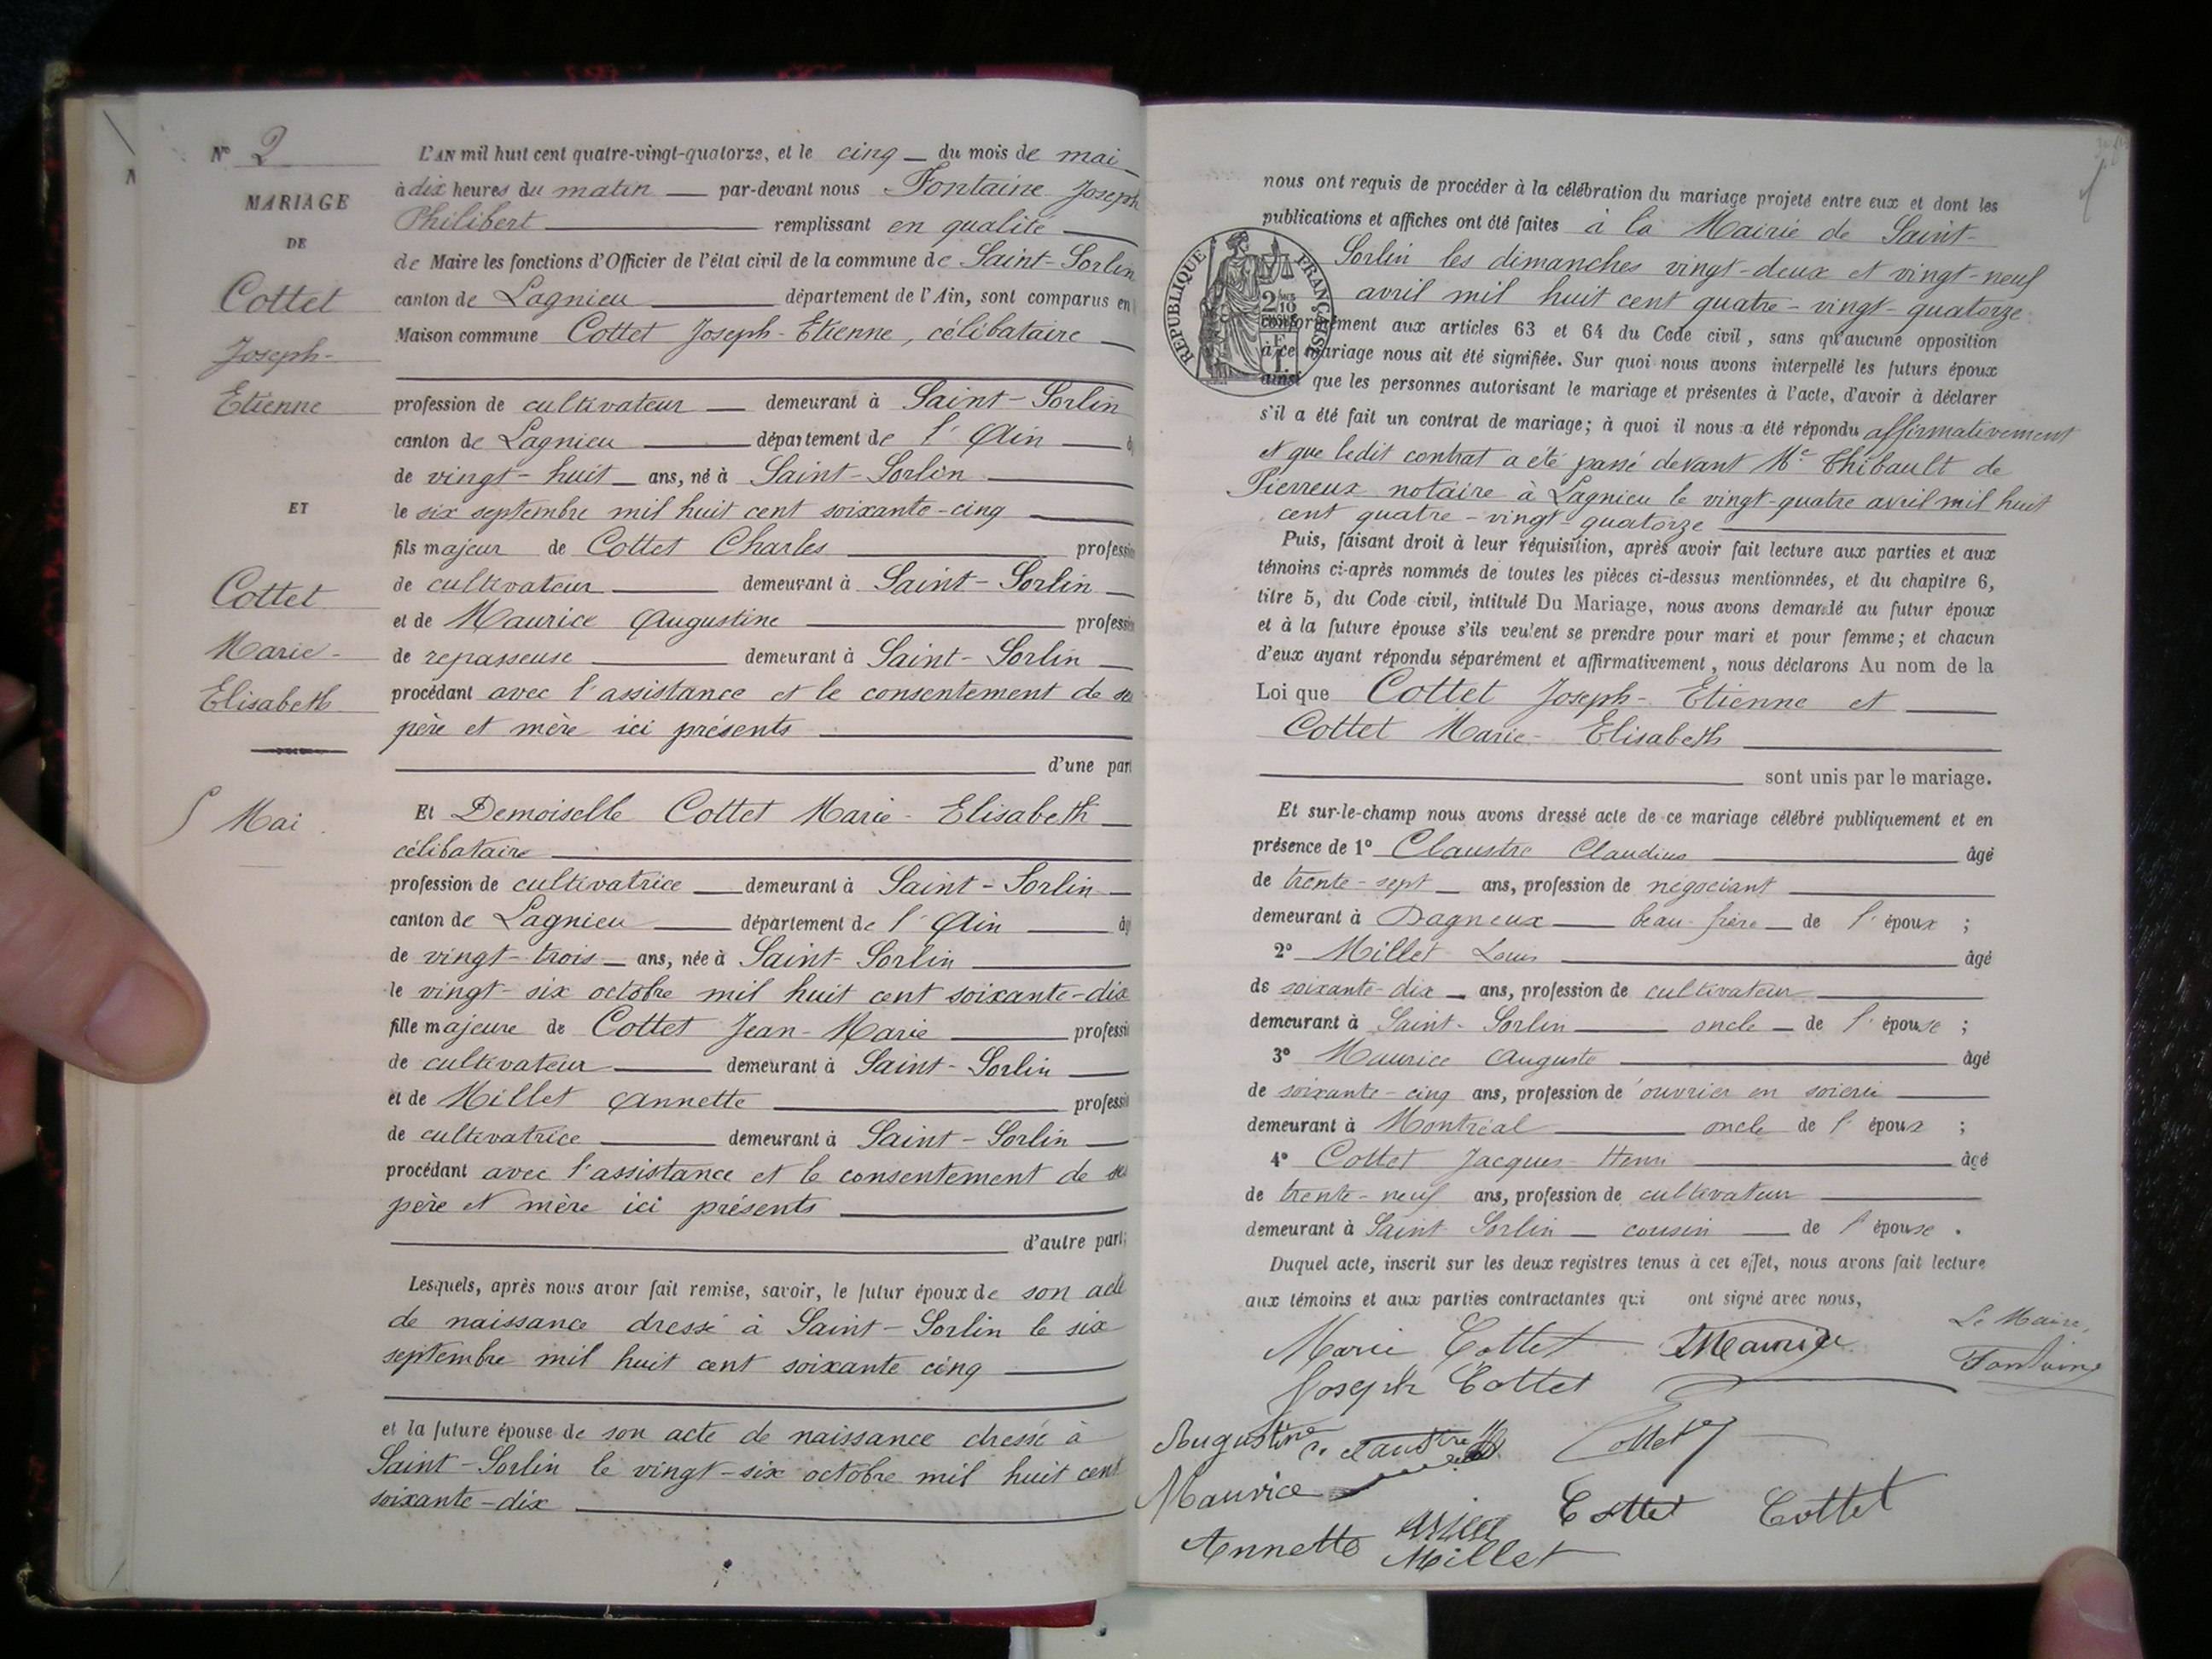 N° 2
MARIAGE
DE
Cottet
Joseph-
Etienne
ET
Cottet
Marie-
Elisabeth
5 Mai
L'AN mil huit cent quatre-vingt-quatorze, et le cinq du mois de mai
à dix heures du matin par-devant nous Fontaine Joseph
Philibert remplissant en qualité
de Maire les fonctions d'Officier de l'état civil de la commune de Saint-Sorlin
canton de Lagnieu département de l'Ain, sont comparus en
Maison commune Cottet Joseph-Etienne, célibataire
profession de cultivateur demeurant à Saint-Sorlin
canton de Lagnieu département de l'Ain
de vingt-huit ans, né à Saint-Sorlin
le six septembre mil huit cent soixante-cinq
fils majeur de Cottet Charles profession
de cultivateur demeurant à Saint-Sorlin
et de Maurice Augustine profession
de repasseuse demeurant à Saint-Sorlin
procédant avec l'assistance et le consentement de ses
père et mère ici présents
d'une part
Et Demoiselle Cottet Marie-Elisabeth
célibataire
profession de cultivatrice demeurant à Saint-Sorlin
canton de Lagnieu département de l'Ain
de vingt-trois ans, née à Saint-Sorlin
le vingt-six octobre mil huit cent soixante-dix
fille majeure de Cottet Jean-Marie profession
de cultivateur demeurant à Saint-Sorlin
et de Millet Annette profession
de cultivatrice demeurant à Saint-Sorlin
procédant avec l'assistance et le consentement de ses
père et mère ici présents
d'autre part;
Lesquels, après nous avoir fait remise, savoir, le futur époux de son acte
de naissance dressé à Saint-Sorlin le six
septembre mil huit cent soixante cinq
et la future épouse de son acte de naissance dressé à
Saint-Sorlin le vingt-six octobre mil huit cent
soixante-dix
nous ont requis de procéder à la célébration du mariage projeté entre eux et dont les
publications et affiches ont été faites à la Mairie de Saint-
Sorlin les dimanches vingt-deux et vingt-neuf
avril mil huit cent quatre-vingt-quatorze
RÉPUBLIQUE FRANÇAISE
conformément aux articles 63 et 64 du Code civil, sans qu'aucune opposition
à ce mariage nous ait été signifiée. Sur quoi nous avons interpellé les futurs époux
ainsi que les personnes autorisant le mariage et présentes à l'acte, d'avoir à déclarer
s'il a été fait un contrat de mariage; à quoi il nous a été répondu affirmativement
et que ledit contrat a été passé devant Me Thibault de
Pierreux notaire à Lagnieu le vingt-quatre avril mil huit
cent quatre-vingt-quatorze
Puis, faisant droit à leur réquisition, après avoir fait lecture aux parties et aux
témoins ci-après nommés de toutes les pièces ci-dessus mentionnées, et du chapitre 6,
titre 5, du Code civil, intitulé Du Mariage, nous avons demandé au futur époux
et à la future épouse s'ils veulent se prendre pour mari et pour femme; et chacun
d'eux ayant répondu séparément et affirmativement, nous déclarons Au nom de la
Loi que Cottet Joseph-Etienne et
Cottet Marie-Elisabeth
sont unis par le mariage.
Et sur-le-champ nous avons dressé acte de ce mariage célébré publiquement et en
présence de 1° Claustre Claudius âgé
de trente-sept ans, profession de négociant
demeurant à Dagneux beau-frère de l'époux ;
2° Millet Louis âgé
de soixante-dix ans, profession de cultivateur
demeurant à Saint-Sorlin oncle de l'épouse ;
3° Maurice Auguste âgé
de soixante-cinq ans, profession de ouvrier en soierie
demeurant à Montréal oncle de l'époux ;
4° Cottet Jacques-Henri âgé
de trente-neuf ans, profession de cultivateur
demeurant à Saint Sorlin cousin de l'épouse .
Duquel acte, inscrit sur les deux registres tenus à cet effet, nous avons fait lecture
aux témoins et aux parties contractantes qui ont signé avec nous,
Marie Cottet Maurice Le Maire,
Joseph Cottet Fontaine
Augustine C. Claustre Cottet
Maurice Cottet Cottet
Annette Millet